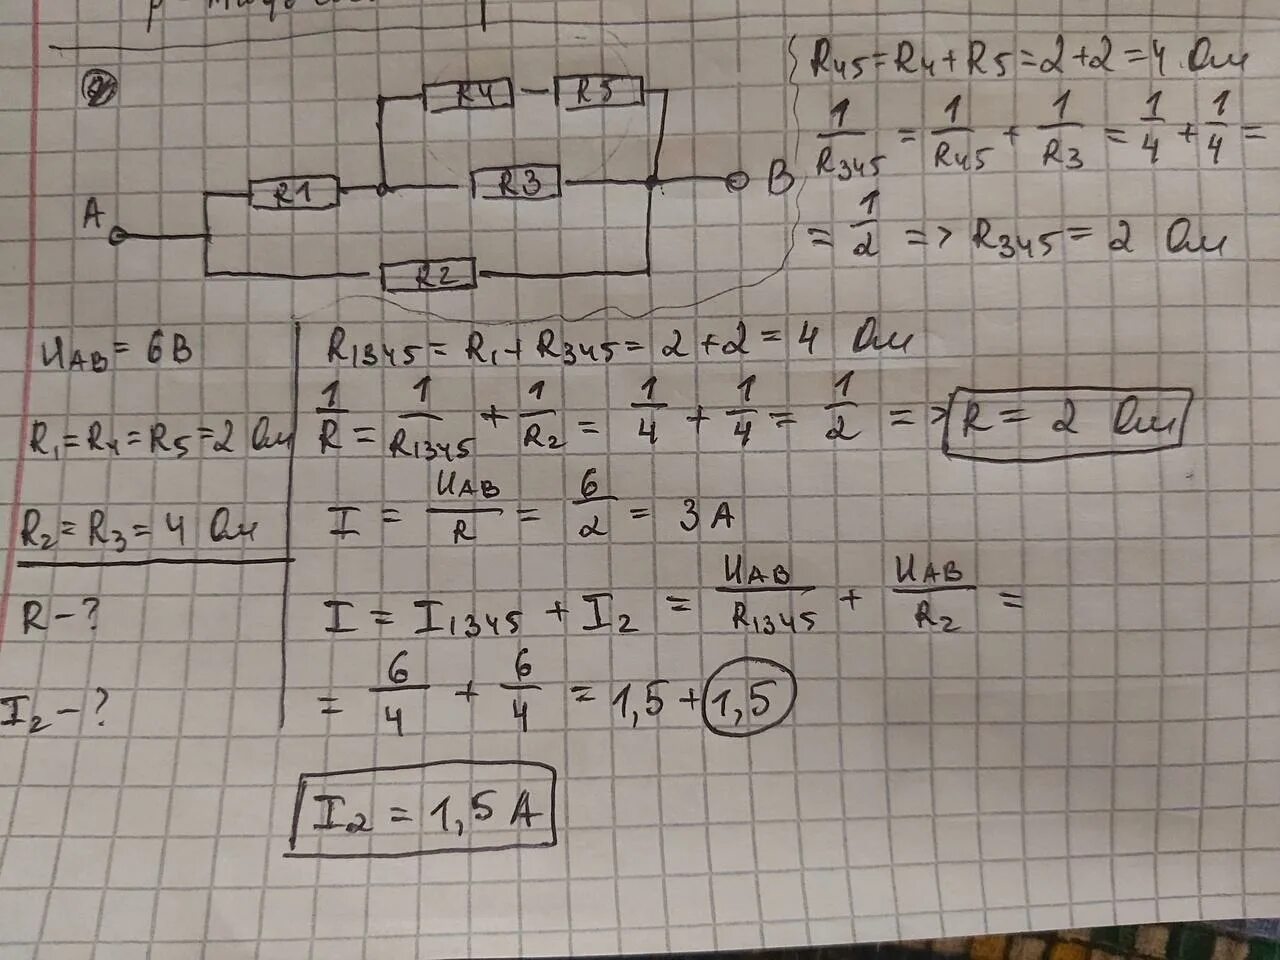 2
R4 R5
R1 R3 B
A
R2
R45 = R4 + R5 = 2+2 = 4 Ом
1/R345 = 1/R45 + 1/R3 = 1/4 + 1/4 =
= 1/2 => R345 = 2 Ом
UAB = 6В
R1 = R4 = R5 = 2 Ом
R2 = R3 = 4 Ом
R - ?
I2 - ?
R1345 = R1 + R345 = 2 + 2 = 4 Ом
1/R = 1/R1345 + 1/R2 = 1/4 + 1/4 = 1/2 => R = 2 Ом
I = UAB/R = 6/2 = 3 А
I = I1345 + I2 = UAB/R1345 + UAB/R2 =
= 6/4 + 6/4 = 1,5 + 1,5
I2 = 1,5 А